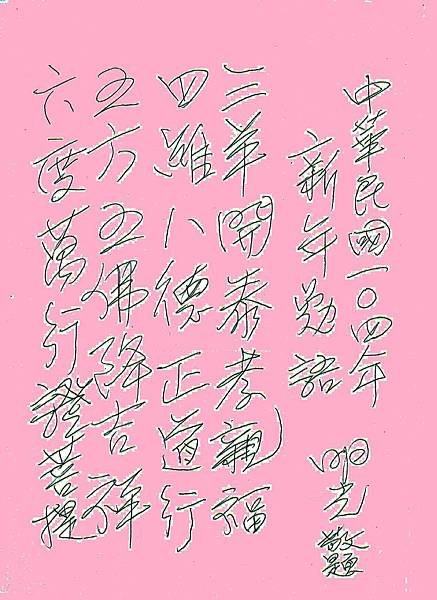 中華民國一〇四年
新年勉語
明光敬題
三羊開泰孝親福
四維八德正道行
五方五佛降吉祥
六度萬行證菩提